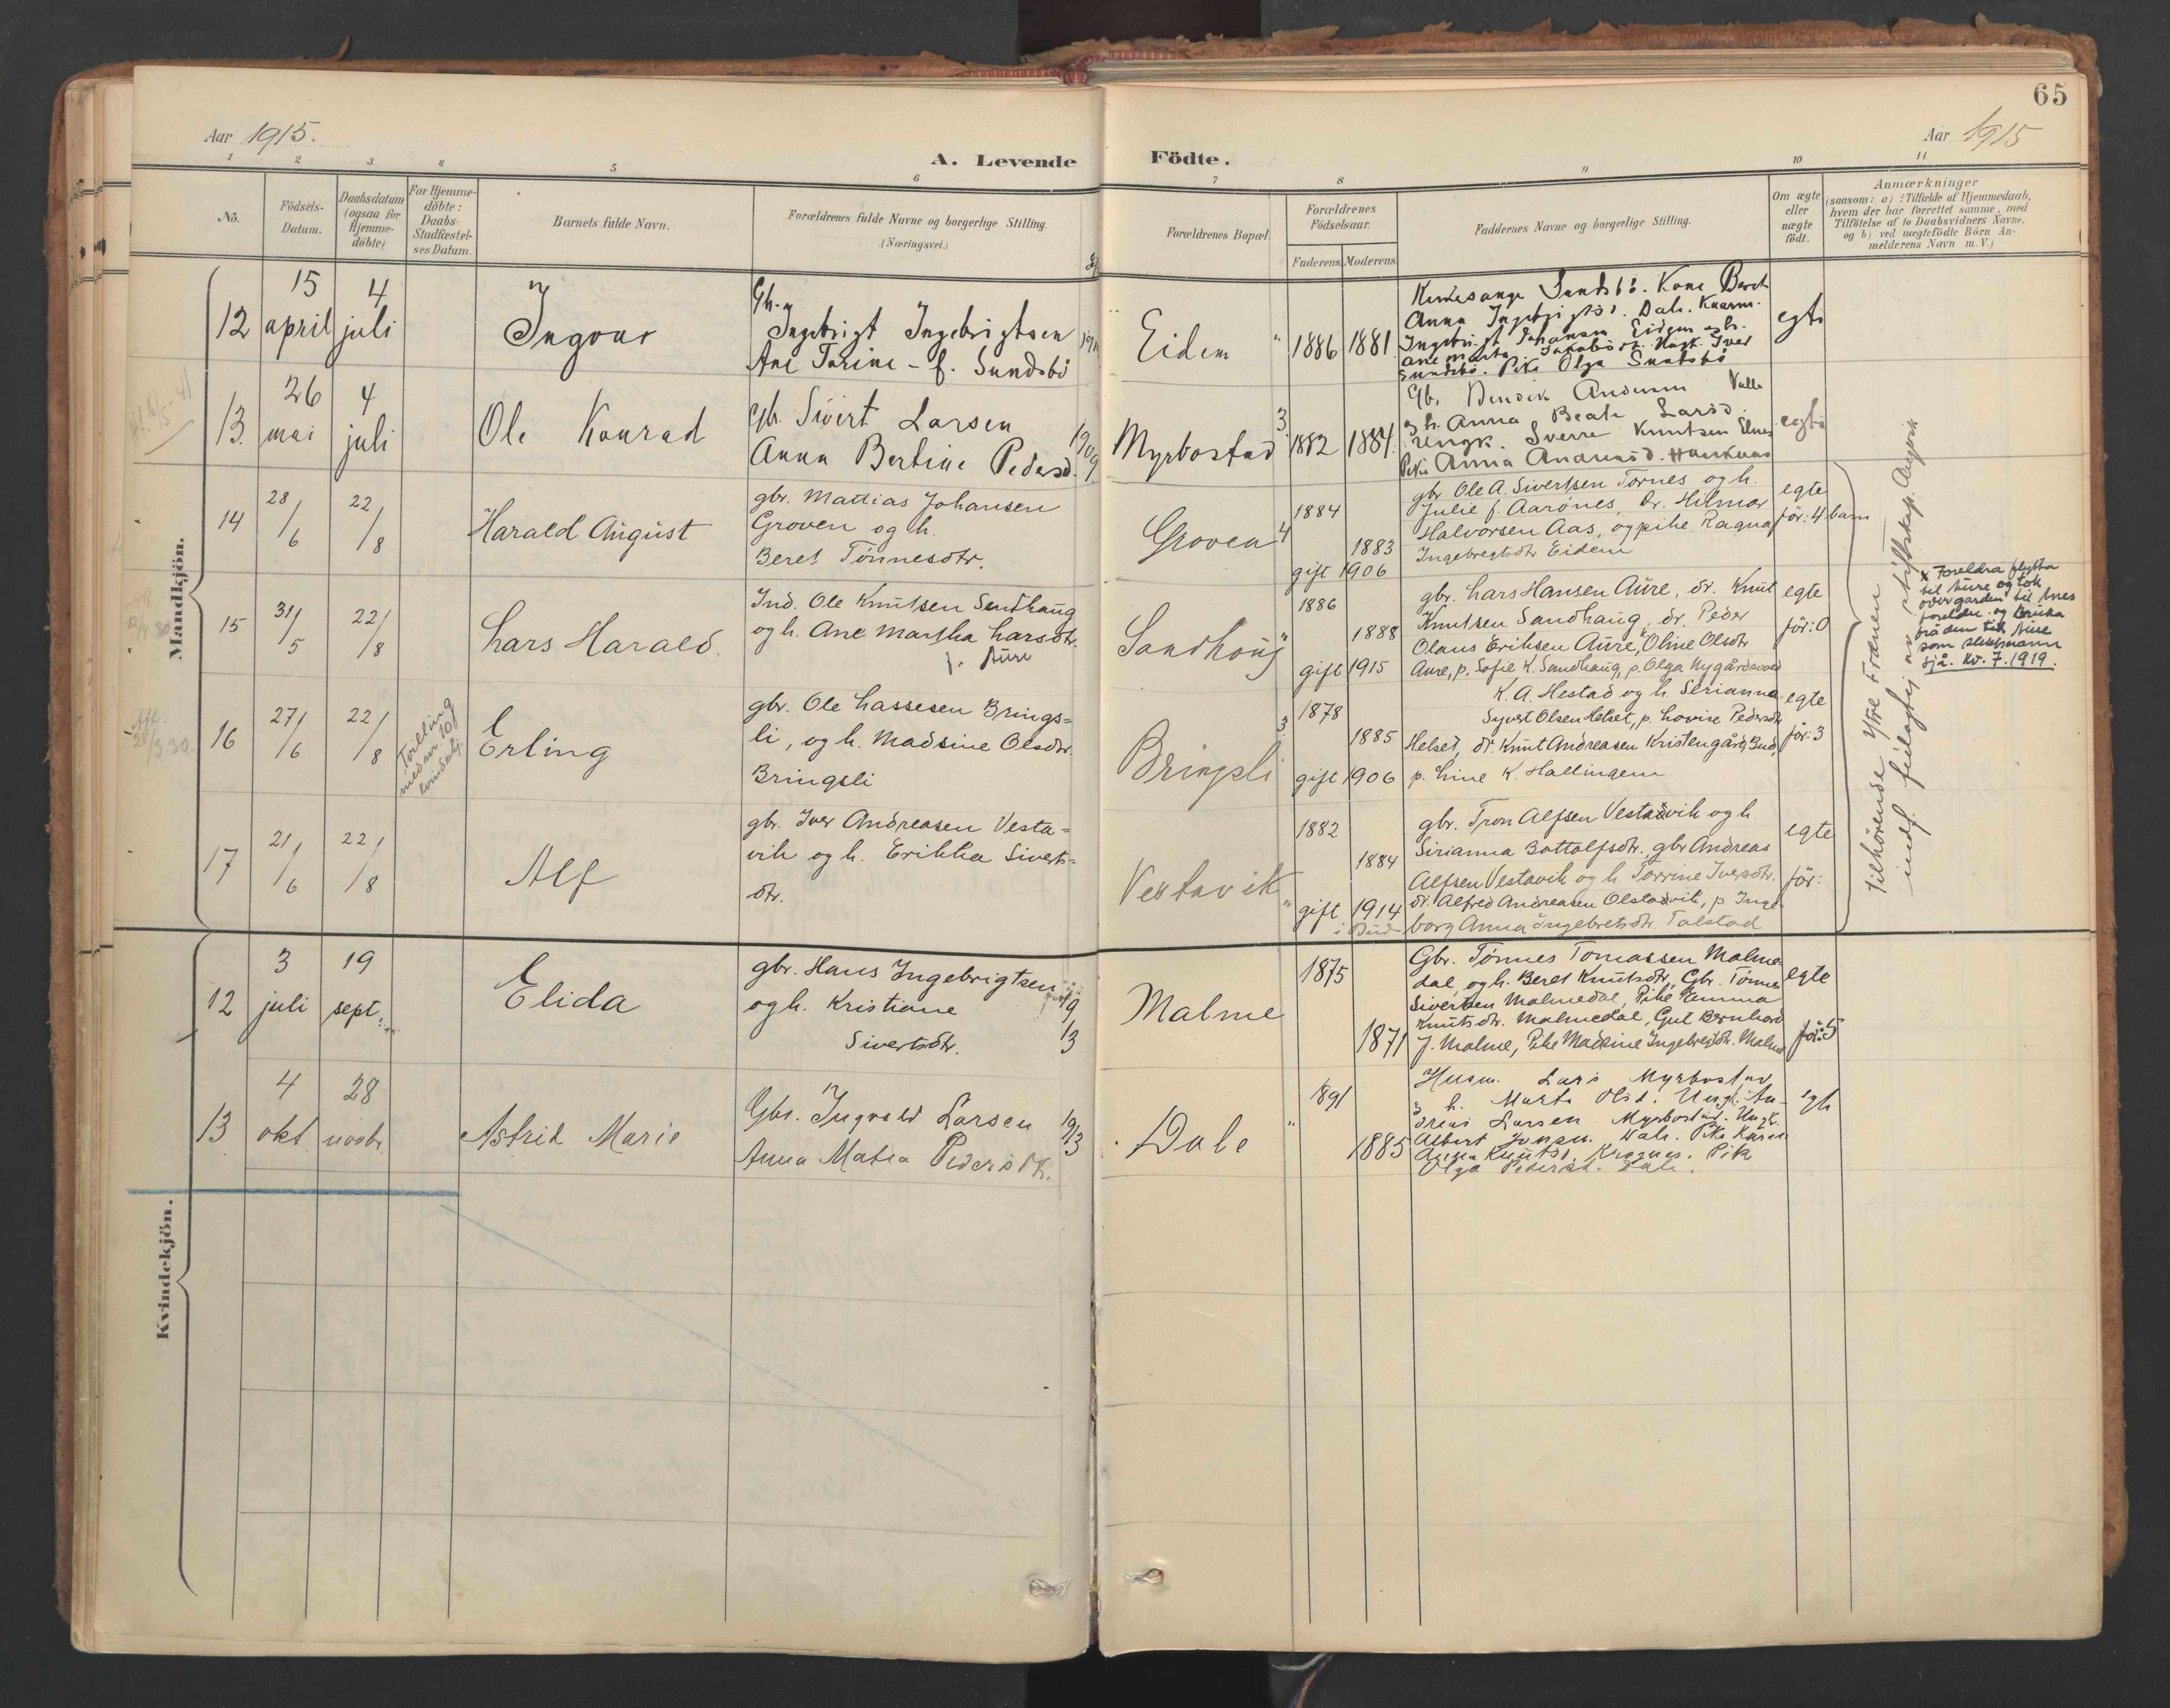 65
Aar 1915.
Aar 1915
A. Levende Födte.
1 2 3 4 5 6 7 8 9 10 11
No.
Födsels-
Datum.
Daabsdatum
(ogsaa for
Hjemme-
döbte)
For Hjemme-
döbte:
Daabs-
Stadfæstel-
ses Datum.
Barnets fulde Navn.
Forældrenes fulde Navne og borgerlige Stilling.
(Næringsvei.)
Forældrenes Bopæl.
Forældrenes
Födselsaar.
Faderens. Moderens.
Faddernes Navne og borgerlige Stilling.
Om ægte
eller
uægte
födt.
Anmærkninger
(saasom: a) i Tilfælde af Hjemmedaab,
hvem der har forrettet samme, med
Tilföielse af to Daabsvidners Navne.
og b) ved uægtefödte Börn An-
melderens Navn m.V.)
Mandkjön.
12
15
april
4
juli
Ingvar
Gbr.
Ingebrigt Ingebrigtsen
Ane Tarine - f. Sundsbö
Eidem
1886 1881
Kirkesanger Sundsbö. Kone Beret
Anna Ingebrigtsd. Dale.
Ingebrigt Johansen Eidem og h.
Ane Marta Jakobsdt. Ungk. Iver
Sundsbö. Pike Olga Sundsbö
egte
13
26
mai
4
juli
Ole Konrad
Gbr. Sivert Larsen
Anna Bertine Pedersd.
1909
Myrbostad
3
1882 1884
Gbr. Bendik Andersen Valle
og h. Anna Beate Larsd.
Ungk. Sverre Knutsen Elnes
Pike Anna Andreasd. Haukaas
egte
14
28/6
22/8
Harald August
gbr. Mattias Johansen
Groven og h.
Beret Tönnesdtr.
Groven
4
1884
1883
gift 1906
gbr. Ole A. Sivertsen Tornes og h.
Julie f. Aarönes, dr. Hilmar
Halvorsen Aas, og pike Ragna
Ingebregtsdtr Eidem
egte
för: 4 barn
15
31/5
22/8
Lars Harald.
Ind. Ole Knutsen Sandhaug
og h. Ane Martha Larsdtr.
f. Aure
Sandhoug
1886
1888
gift 1915
gbr. Lars Hansen Aure, dr. Knut
Knutsen Sandhaug, dr. Peder
Olaus Eriksen Aure, Oline Olsdtr
Aure, p. Sofie K. Sandhaug, p. Olga Nygårdsvold
egte
för: 0
x Foreldra flytta
til Aure og tok
over garden til
foreldr. og bruka
frå den tid Aure
som slektsnamn
sjå. kv. 7. 1919.
16
27/6
22/8
Tvilling
med nr. 10
kvindekj.
Erling
gbr. Ole Lassesen Brings=
li, og h. Madsine Olsdtr.
Bringsli
Bringsli
3
1878
1885
gift 1906
K. A. Hestad og h. Serianna
Syvert Olsen Helset, p. Lovise Pedersdtr
Helset, dr. Knut Andreasen Kristengård, Bud,
p. Line K. Hallingem
egte
för: 3
17
21/6
22/8
Alf
gbr. Iver Andreasen Vesta=
vik og h. Erikka Siverts=
dtr.
Vestavik
1882
1884
gift 1914
i Bud
gbr. Tron Alfsen Vestadvik og h.
Sirianna Bottolfsdtr. gbr Andreas
Alfsen Vestavik og h. Torrine Iversdtr.
dr. Alfred Andreasen Olstadvik, p. Inge-
borg Anna Ingebretsdtr. Talstad
egte
för:
tilhörende Ytre Frænen
indf. fölgelig av
Kvindekjön.
12
3
juli
19
sept.
Elida
gbr. Hans Ingebrigtsen
og h. Kristiane
Sivertsdtr.
19/13
Malme
1875
1871
Gbr. Tönnes Tomassen Malme-
dal, og h. Beret Knutsdtr, Gbr. Tönnes
Sivertsen Malmedal, Pike Emma
Knutsdtr. Malmedal, Gut Bernhard
J. Malme, Pike Madsine Ingebrigtdtr. Malme
egte
för: 5
13
4
okt
28
novbr.
Astrid Marie
Gbr. Ingvald Larsen
Anna Matea Pedersdtr.
19/13
Dale
1891
1885
Husm. Lars Myrbostad
og h. Marta Olsd. Ungk. An-
dreas Larsen Myrbostad. Ungk.
Albert Jonsen. Dale. Pike Karen
Anna Knutsd. Pike
Olga Pedersd. Dale.
egte